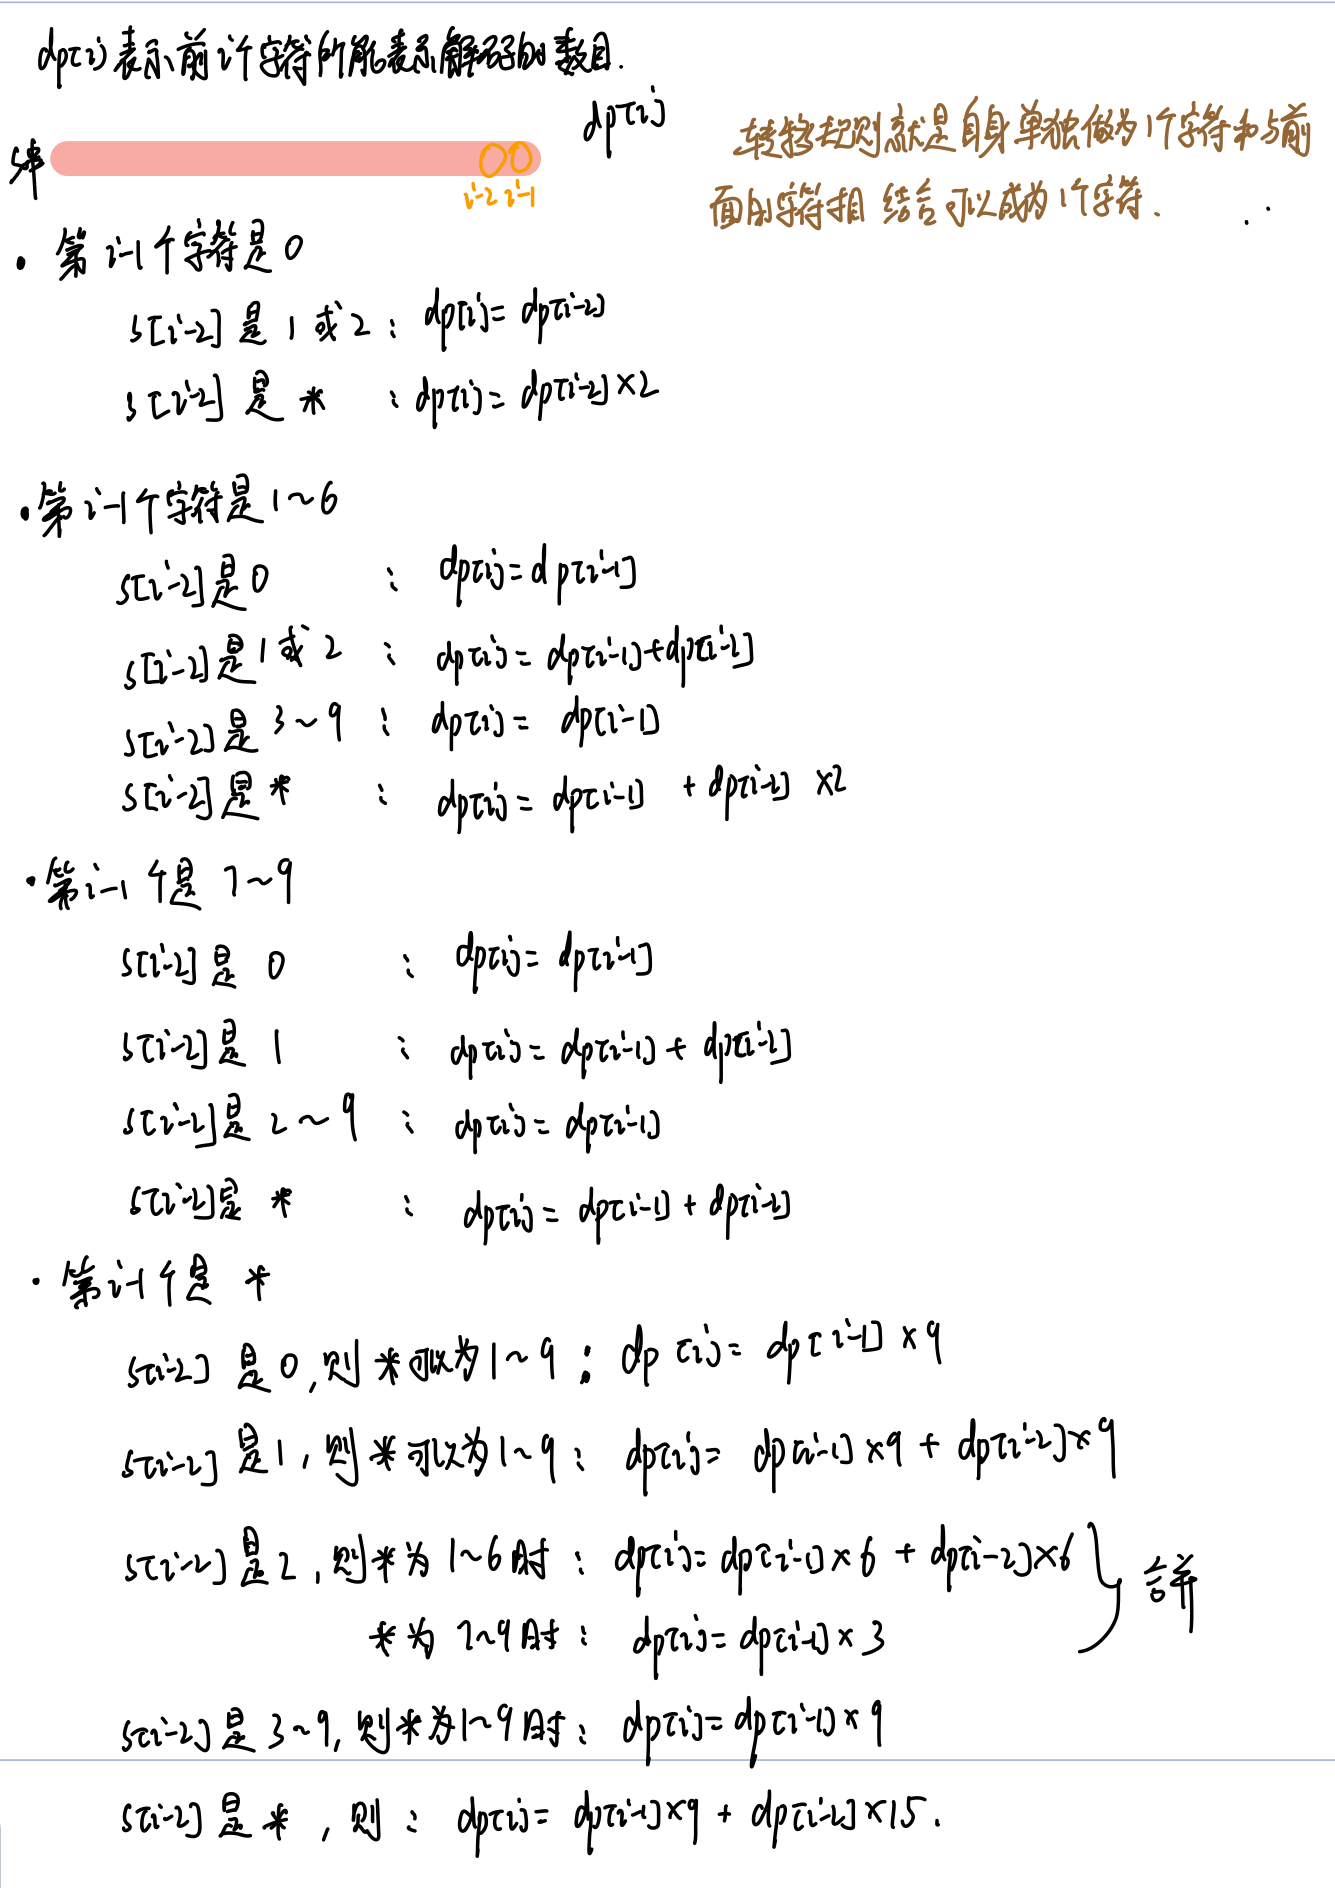 dp[i]表示前i个字符所能表示解码的数目.
dp[i]
转移规则就是自身单独做为1个字符和与前
面的字符相结合可以成为1个字符.
S串
i-2 i-1
· 第i-1个字符是0
s[i-2]是1或2: dp[i]= dp[i-2]
s[i-2]是*: dp[i]= dp[i-2]×2
· 第i-1个字符是1~6
s[i-2]是0: dp[i]=dp[i-1]
s[i-2]是1或2: dp[i]= dp[i-1]+dp[i-2]
s[i-2]是3~9: dp[i]= dp[i-1]
s[i-2]是*: dp[i]= dp[i-1] + dp[i-2] ×2
· 第i-1个是7~9
s[i-2]是0: dp[i]= dp[i-1]
s[i-2]是1: dp[i]= dp[i-1] + dp[i-2]
s[i-2]是2~9: dp[i]= dp[i-1]
s[i-2]是*: dp[i]= dp[i-1] + dp[i-2]
· 第i-1个是*
s[i-2]是0,则*可以为1~9: dp[i]= dp[i-1]×9
s[i-2]是1,则*可以为1~9: dp[i]= dp[i-1]×9 + dp[i-2]×9
s[i-2]是2,则*为1~6时: dp[i]= dp[i-1]×6 + dp[i-2]×6
*为7~9时: dp[i]= dp[i-1]×3
合并
s[i-2]是3~9,则*为1~9时: dp[i]= dp[i-1]×9
s[i-2]是*,则: dp[i]= dp[i-1]×9 + dp[i-2]×15.